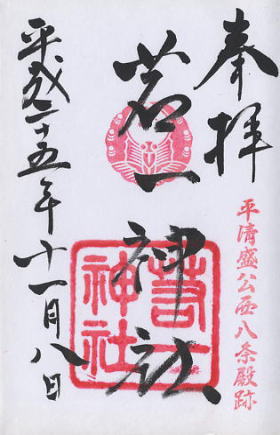 奉拝
平清盛公西八条殿跡
若一神社
若一神社
平成二十五年十一月八日